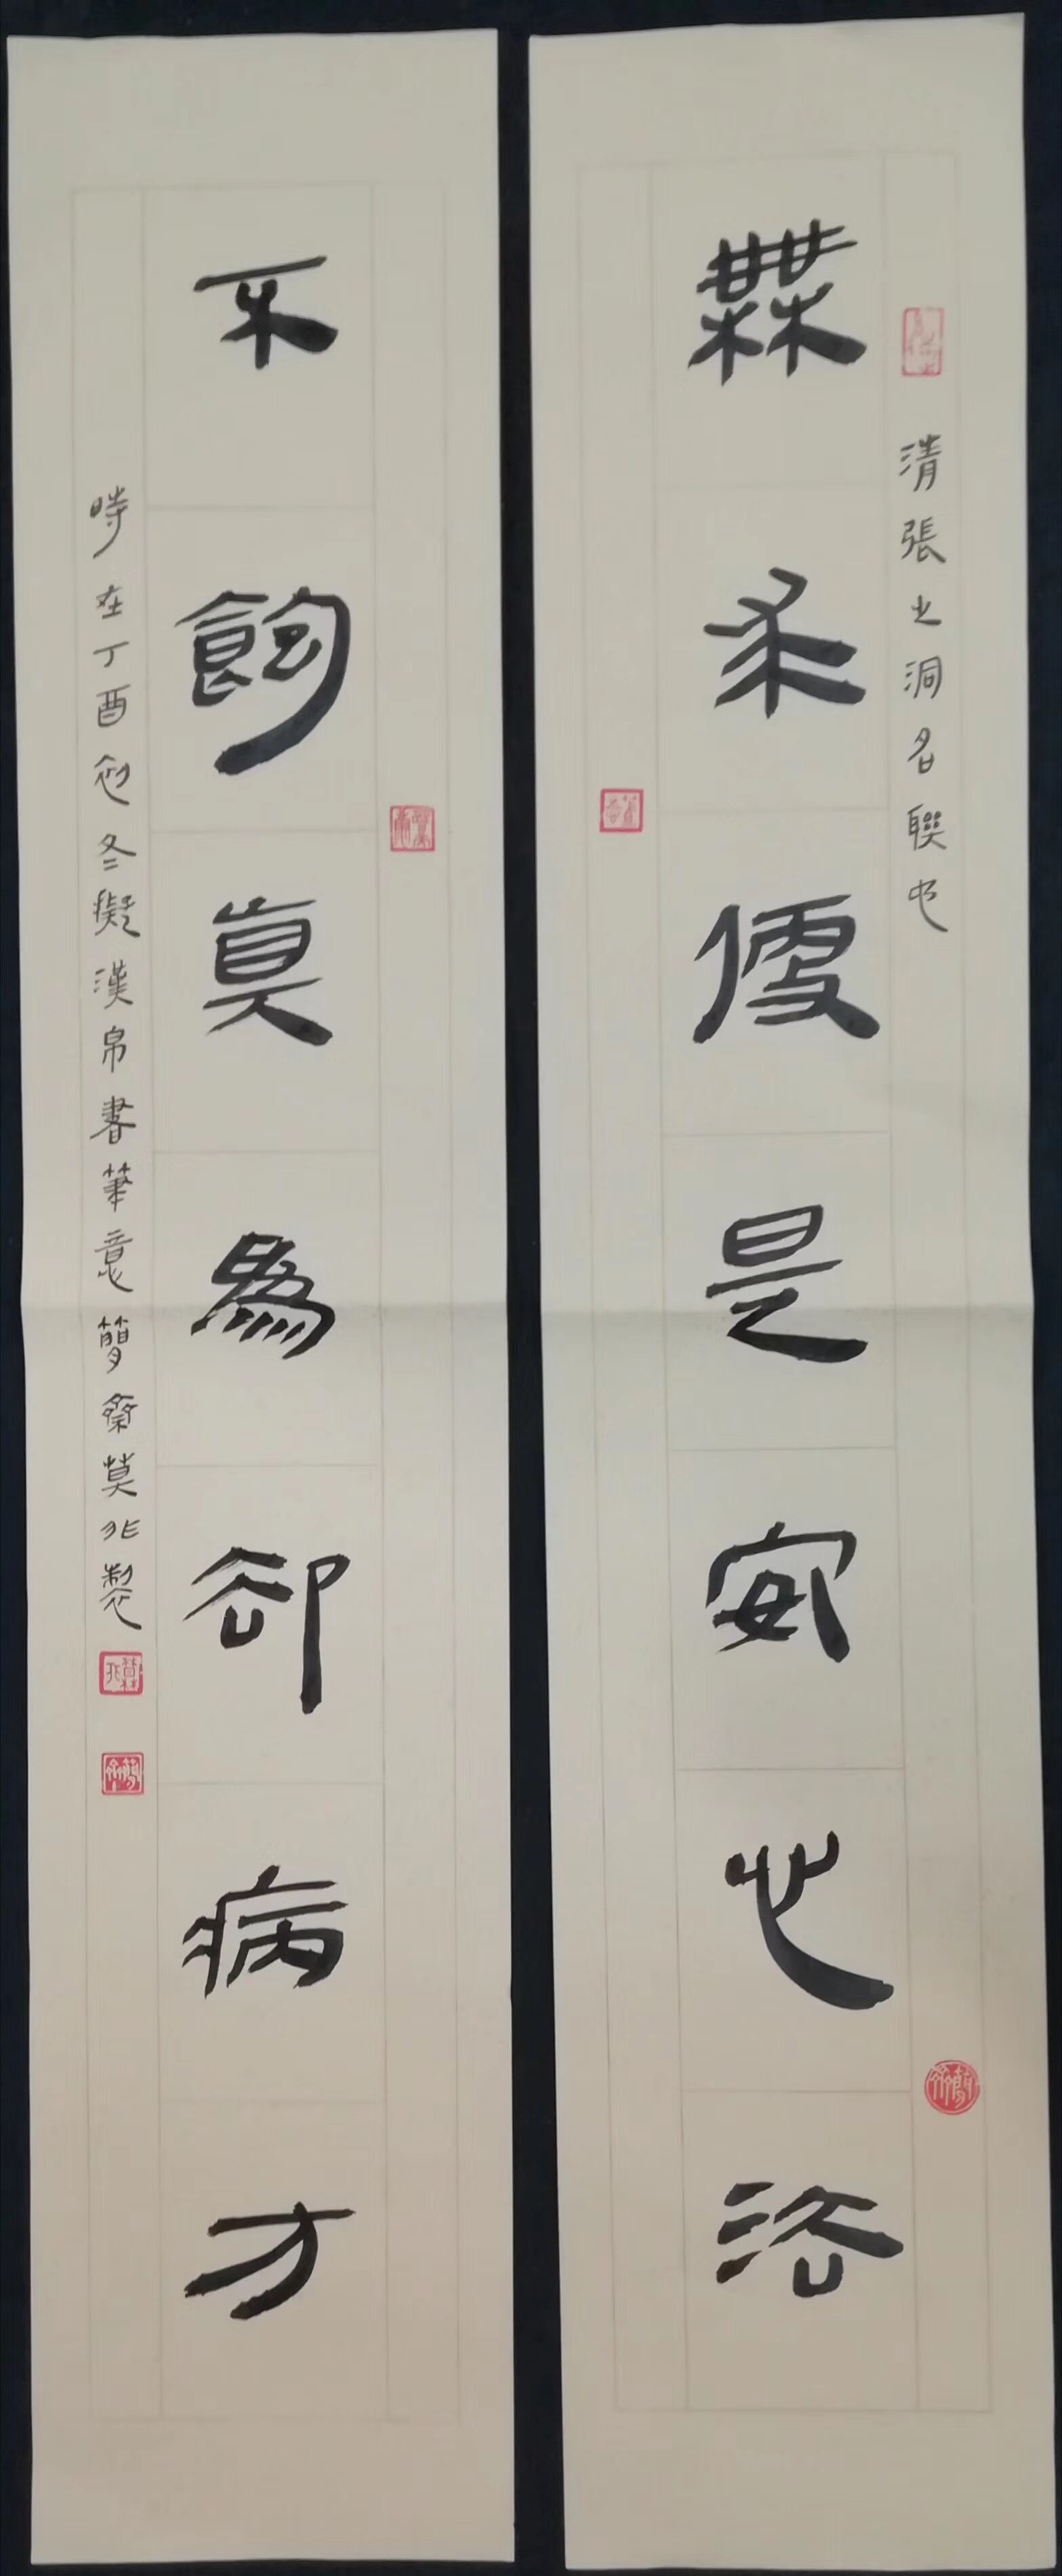 清張之洞名聯也
無求便是安心法
不飽真為卻病方
時在丁酉初冬擬漢帛書筆意簡齋莫非製